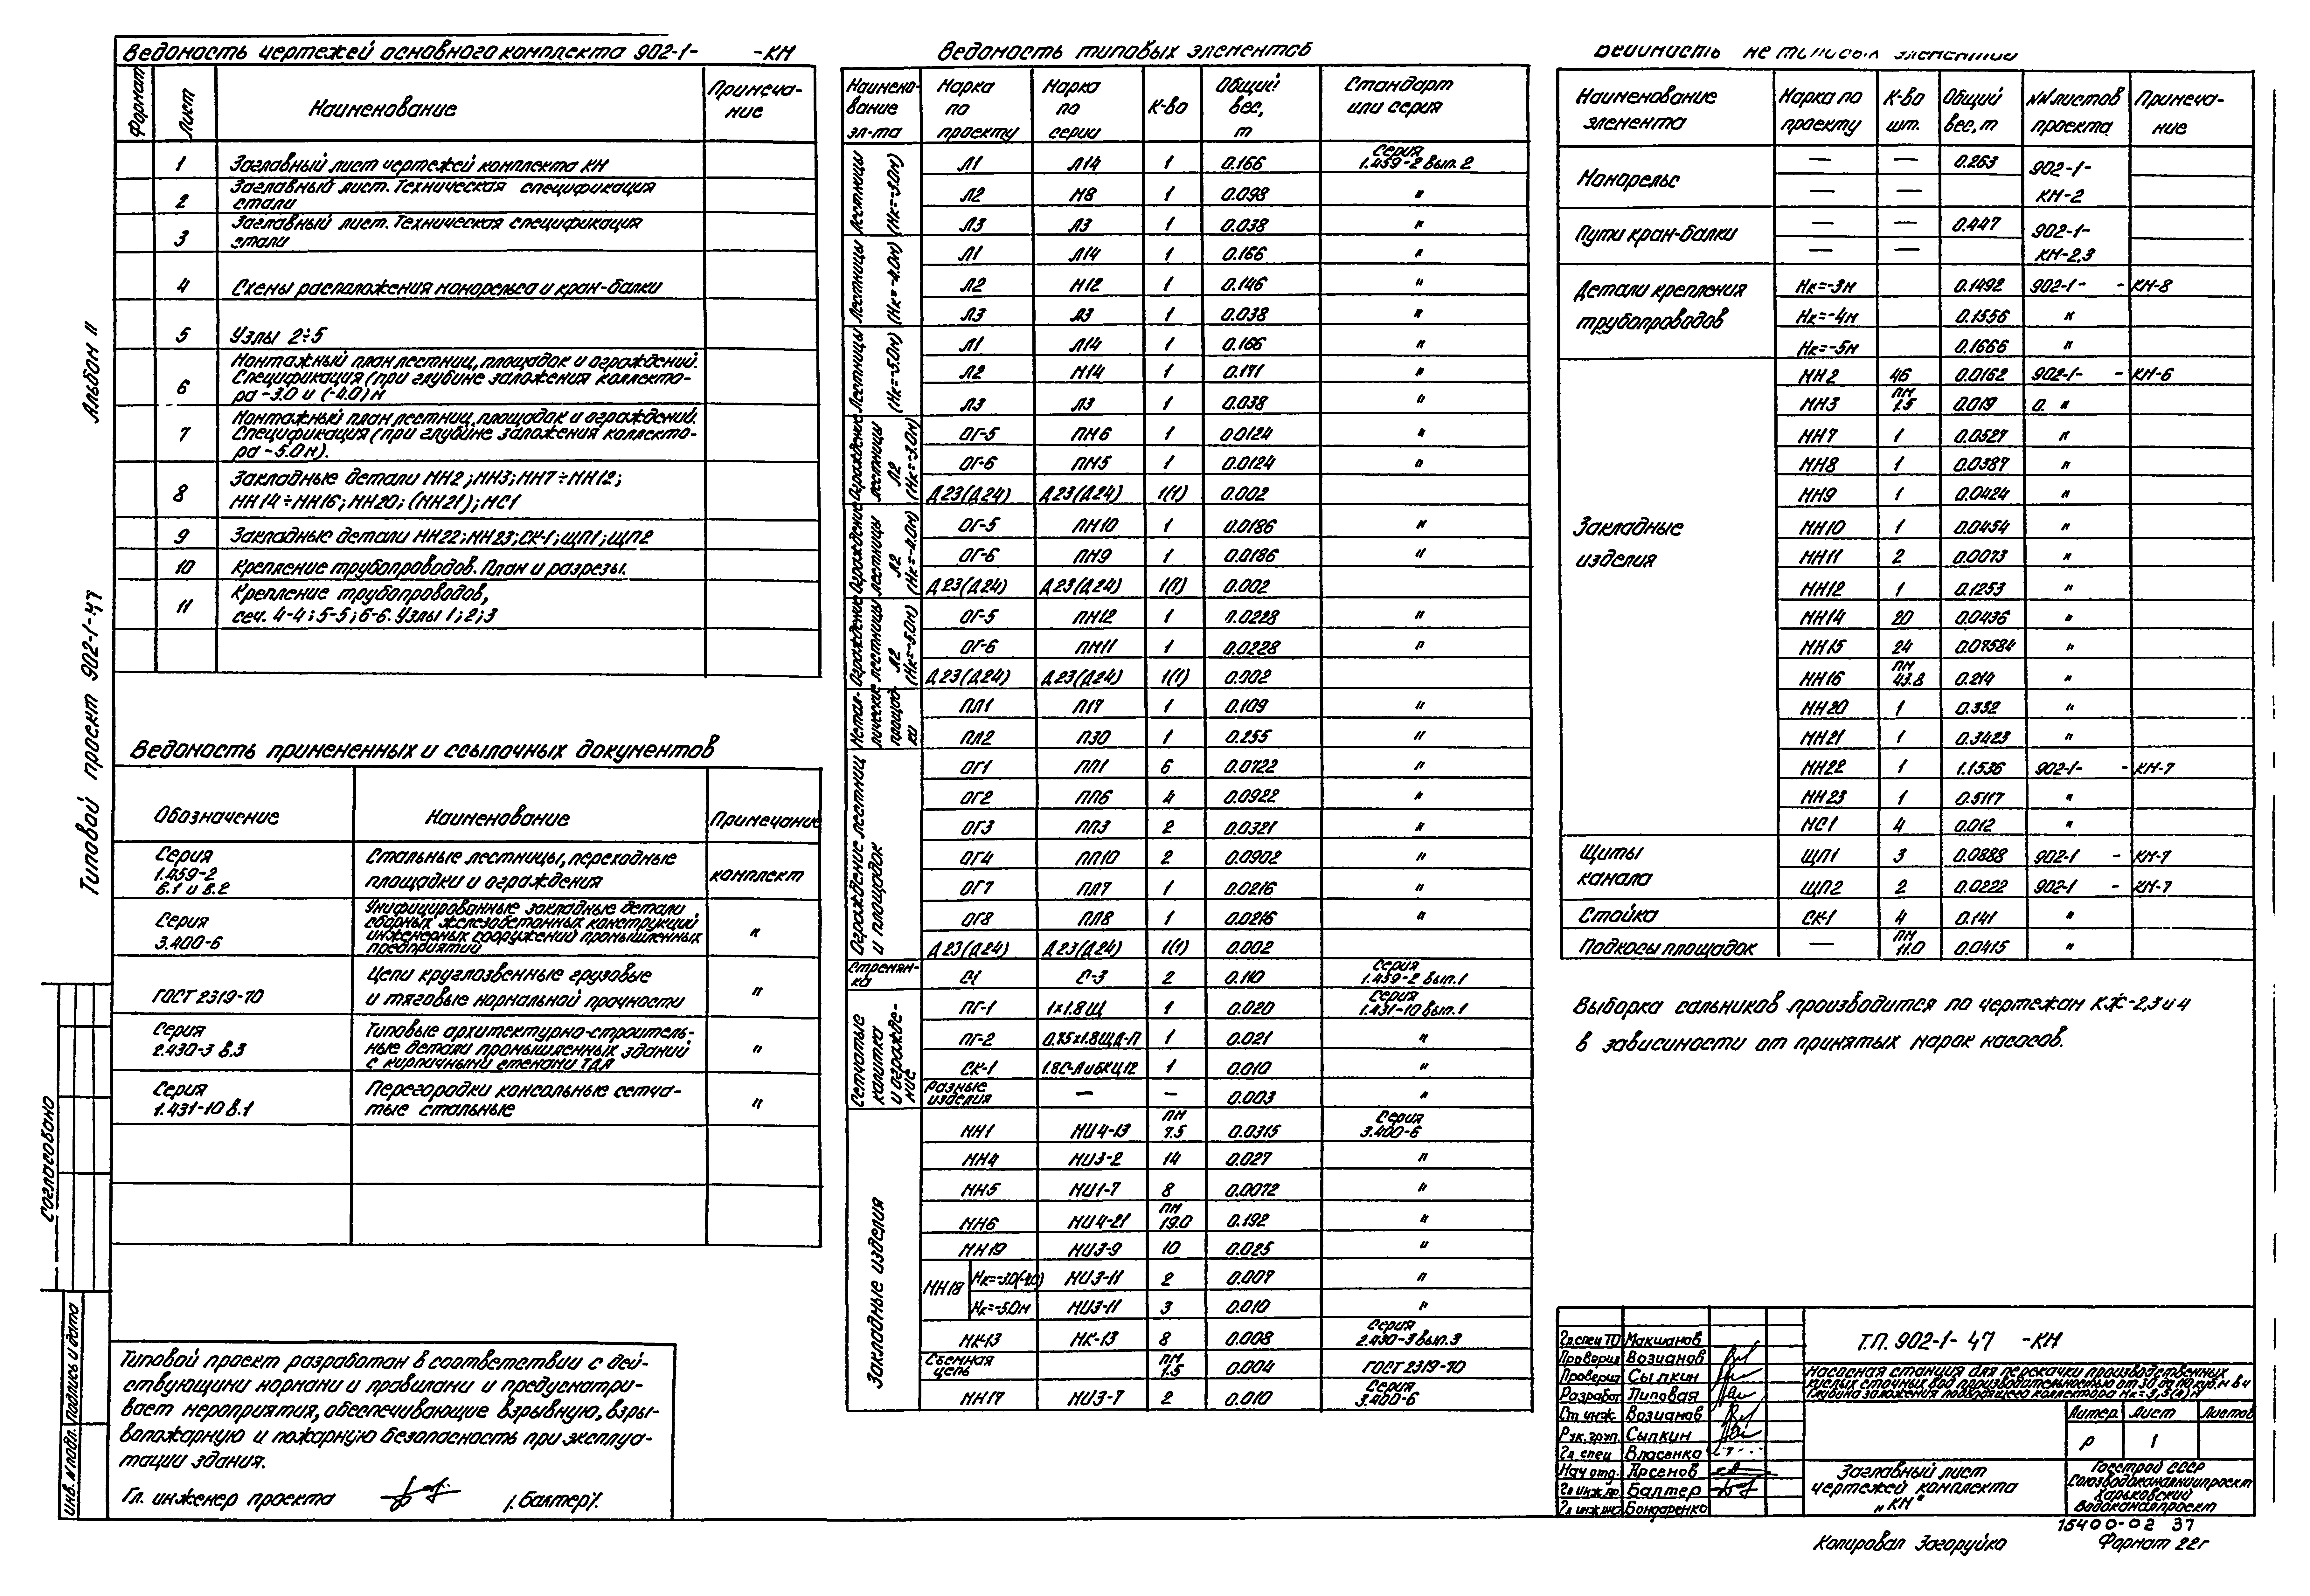 Альбом II
Типовой проект 902-1-47
Согласовано
Подпись и дата
Инв. N подл.
Ведомость чертежей основного комплекта 902-1- -КМ
Формат Лист Наименование Примечание
1 Заглавный лист чертежей комплекта КМ
2 Заглавный лист. Техническая спецификация стали
3 Заглавный лист. Техническая спецификация стали
4 Схемы расположения монорельса и кран-балки
5 Узлы 2÷5
6 Монтажный план лестниц, площадок и ограждений.
Спецификация (при глубине заложения коллекто-
ра -3.0 и (-4.0) м
7 Монтажный план лестниц, площадок и ограждений.
Спецификация (при глубине заложения коллекто-
ра -5.0 м).
8 Закладные детали МН2; МН3; МН7÷МН12;
МН14÷МН16; МН20; (МН21); МС1
9 Закладные детали МН22; МН23; СК-1; ЩП1; ЩП2
10 Крепление трубопроводов. План и разрезы.
11 Крепление трубопроводов,
сеч. 4-4; 5-5; 6-6. Узлы 1; 2; 3
Ведомость примененных и ссылочных документов
Обозначение Наименование Примечание
Серия 1.459-2 в.1 и в.2 Стальные лестницы, переходные площадки и ограждения комплект
Серия 3.400-6 Унифицированные закладные детали
сборных железобетонных конструкций
инженерных сооружений промышленных
предприятий "
ГОСТ 2319-70 Цепи круглозвенные грузовые
и тяговые нормальной прочности "
Серия 2.430-3 в.3 Типовые архитектурно-строитель-
ные детали промышленных зданий
с кирпичными стенами ТДА "
Серия 1.431-10 в.1 Перегородки консольные сетча-
тые стальные "
Типовой проект разработан в соответствии с дей-
ствующими нормами и правилами и предусматри-
вает мероприятия, обеспечивающие взрывную, взры-
вопожарную и пожарную безопасность при эксплуа-
тации здания.
Гл. инженер проекта /Балтер/.
Ведомость типовых элементов
Наименование эл-та Марка по проекту Марка по серии К-во Общий вес, т Стандарт или серия
Лестницы (Нк=-3.0м)
Л1 Л14 1 0.166 Серия 1.459-2 вып. 2
Л2 М8 1 0.098 "
Л3 Л3 1 0.038 "
Лестницы (Нк=-4.0м)
Л1 Л14 1 0.166 "
Л2 М12 1 0.146 "
Л3 Л3 1 0.038 "
Лестницы (Нк=-5.0м)
Л1 Л14 1 0.166 "
Л2 М14 1 0.171 "
Л3 Л3 1 0.038 "
Ограждение лестницы Л2 (Нк=-3.0м)
ОГ-5 ПМ6 1 0.0124 "
ОГ-6 ПМ5 1 0.0124 "
Д23(Д24) Д23(Д24) 1(1) 0.002
Ограждение лестницы Л2 (Нк=-4.0м)
ОГ-5 ПМ10 1 0.0186 "
ОГ-6 ПМ9 1 0.0186 "
Д23(Д24) Д23(Д24) 1(1) 0.002
Ограждение лестницы Л2 (Нк=-5.0м)
ОГ-5 ПМ12 1 0.0228 "
ОГ-6 ПМ11 1 0.0228 "
Д23(Д24) Д23(Д24) 1(1) 0.002
Металлические площадки
ПЛ1 П17 1 0.109 "
ПЛ2 П30 1 0.255 "
Ограждение лестниц и площадок
ОГ1 ПП1 6 0.0722 "
ОГ2 ПП6 4 0.0922 "
ОГ3 ПП3 2 0.0321 "
ОГ4 ПП10 2 0.0902 "
ОГ7 ПЛ7 1 0.0216 "
ОГ8 ПЛ8 1 0.0216 "
Д23(Д24) Д23(Д24) 1(1) 0.002
Стремянка
С1 С-3 2 0.110 Серия 1.459-2 вып.1
Сетчатые калитка и ограждение
ПГ-1 1х1.8Щ 1 0.020 Серия 1.431-10 вып.1
ПГ-2 0.75х1.8ЩД-П 1 0.021 "
СК-1 1.8С-ЛиБКЦ12 1 0.010 "
Разные изделия — — 0.003 "
Закладные изделия
МН1 МИ4-13 пм 7.5 0.0315 Серия 3.400-6
МН4 МИ3-2 14 0.027 "
МН5 МИ1-7 8 0.0072 "
МН6 МИ4-21 пм 19.0 0.192 "
МН19 МИ3-9 10 0.025 "
МН18 Нк=-3.0(-4.0) МИ3-11 2 0.007 "
Нк=-5.0м МИ3-11 3 0.010 "
МК-13 МК-13 8 0.008 Серия 2.430-3 вып.3
Съемная цепь пм 1.5 0.004 ГОСТ 2319-70
МН17 МИ3-7 2 0.010 Серия 3.400-6
Ведомость не типовых элементов
Наименование элемента Марка по проекту К-во шт. Общий вес, т NN листов проекта Примечание
Монорельс — — 0.263 902-1-
— — КМ-2
Пути кран-балки — — 0.447 902-1-
— — КМ-2,3
Детали крепления трубопроводов Нк=-3м 0.1492 902-1- - КМ-8
Нк=-4м 0.1556 "
Нк=-5м 0.1666 "
Закладные изделия
МН2 46 0.0162 902-1- - КМ-6
МН3 пм 1.5 0.019 0. "
МН7 1 0.0527 "
МН8 1 0.0387 "
МН9 1 0.0424 "
МН10 1 0.0454 "
МН11 2 0.0073 "
МН12 1 0.1253 "
МН14 20 0.0436 "
МН15 24 0.07584 "
МН16 пм 43.8 0.214 "
МН20 1 0.332 "
МН21 1 0.3423 "
МН22 1 1.1536 902-1- - КМ-7
МН23 1 0.5117 "
МС1 4 0.012 "
Щиты канала ЩП1 3 0.0888 902-1 - КМ-7
ЩП2 2 0.0222 902-1 - КМ-7
Стойка СК-1 4 0.141 "
Подкосы площадок — пм 11.0 0.0415 "
Выборка сальников производится по чертежам КЖ-2,3 и 4
в зависимости от принятых марок насосов.
Гл.спец ТО Макшанов
Проверил Возианов
Проверил Сылкин
Разработ. Липовая
Ст инж. Возианов
Рук. груп. Сылкин
Гл спец Власенко
Нач отд. Арсенов
Гл инж пр. Балтер
Гл инж ина Бондаренко
Т.П. 902-1- 47 -КМ
Насосная станция для перекачки производственных
кислых сточных вод производительностью от 30 до 110 куб.м в ч
Глубина заложения подводящего коллектора Нк=
Литер. Лист Листов
Р 1
Заглавный лист
чертежей комплекта
„КМ"
Госстрой СССР
Союзводоканалниипроект
Харьковский
Водоканалпроект
15400-02 37
Копировал Загоруйко
Формат 22г